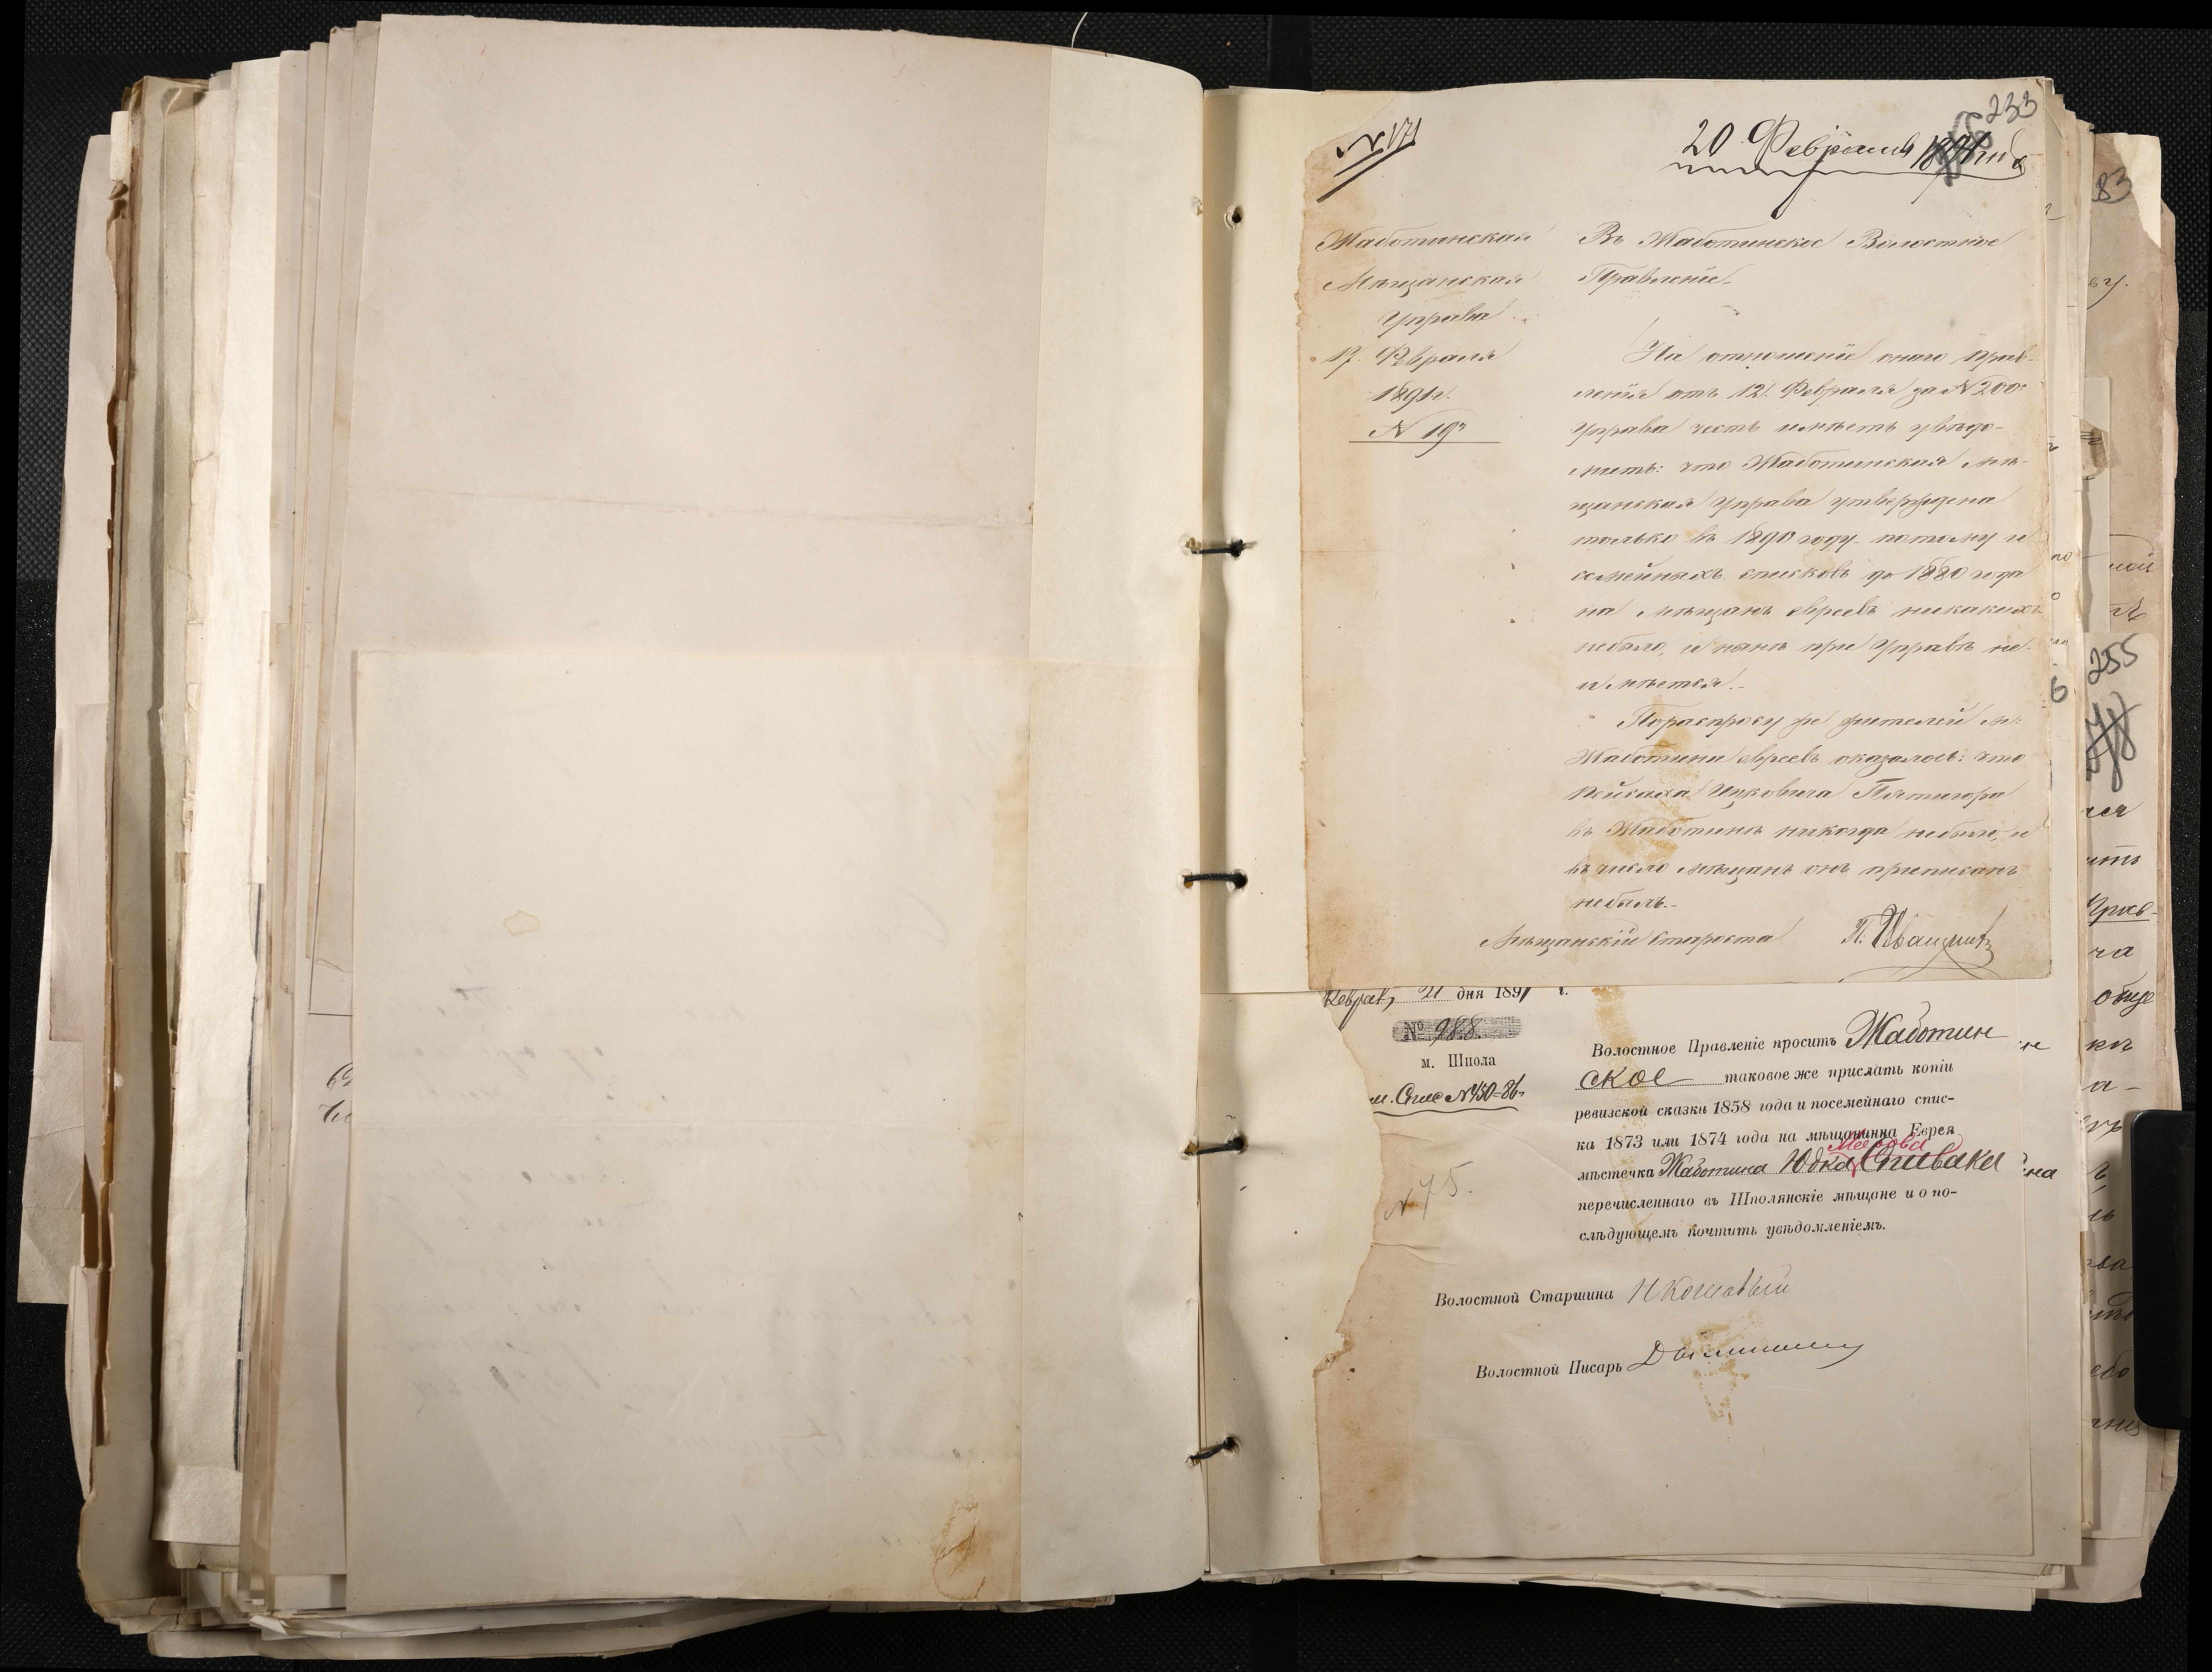 233
N 171
20 Февраля 1891 года
Жаботинская
Мѣщанская
Управа
17 Февраля
1891 г.
N 19
Въ Жаботинское Волостное
Правленіе
На отношеніе онаго прав-
ленія отъ 12 Февраля за N 200
Управа честь имѣетъ увѣдо-
мить: что Жаботинская мѣ-
щанская Управа утверждена
только въ 1890 году потому и
семейныхъ списковъ до 1880 года
на мѣщанъ евреевъ никакихъ
небыло, и нынѣ при Управѣ не
имѣется.
Пораспросу же жителей м.
Жаботина евреевъ оказалось: что
Пейсаха Ицковича Пятигора
въ Жаботинѣ никогда небыло, и
въ число мѣщанъ онъ приписанъ
небылъ.
Мѣщанскій Староста П.
Феврал, 21 дня 1891 г.
№ 988.
м. Шпола
N 75.
Волостное Правленіе проситъ Жаботин
ское таковое же прислать копіи
ревизской сказки 1858 года и посемейнаго спис-
ка 1873 или 1874 года на мѣщанина Еврея
Меерова
мѣстечка Жаботина Юдка Спивака
перечисленнаго въ Шполянскіе мѣщане и о по-
слѣдующемъ почтить увѣдомленіемъ.
Волостной Старшина Н Кошовый
Волостной Писарь
83
255